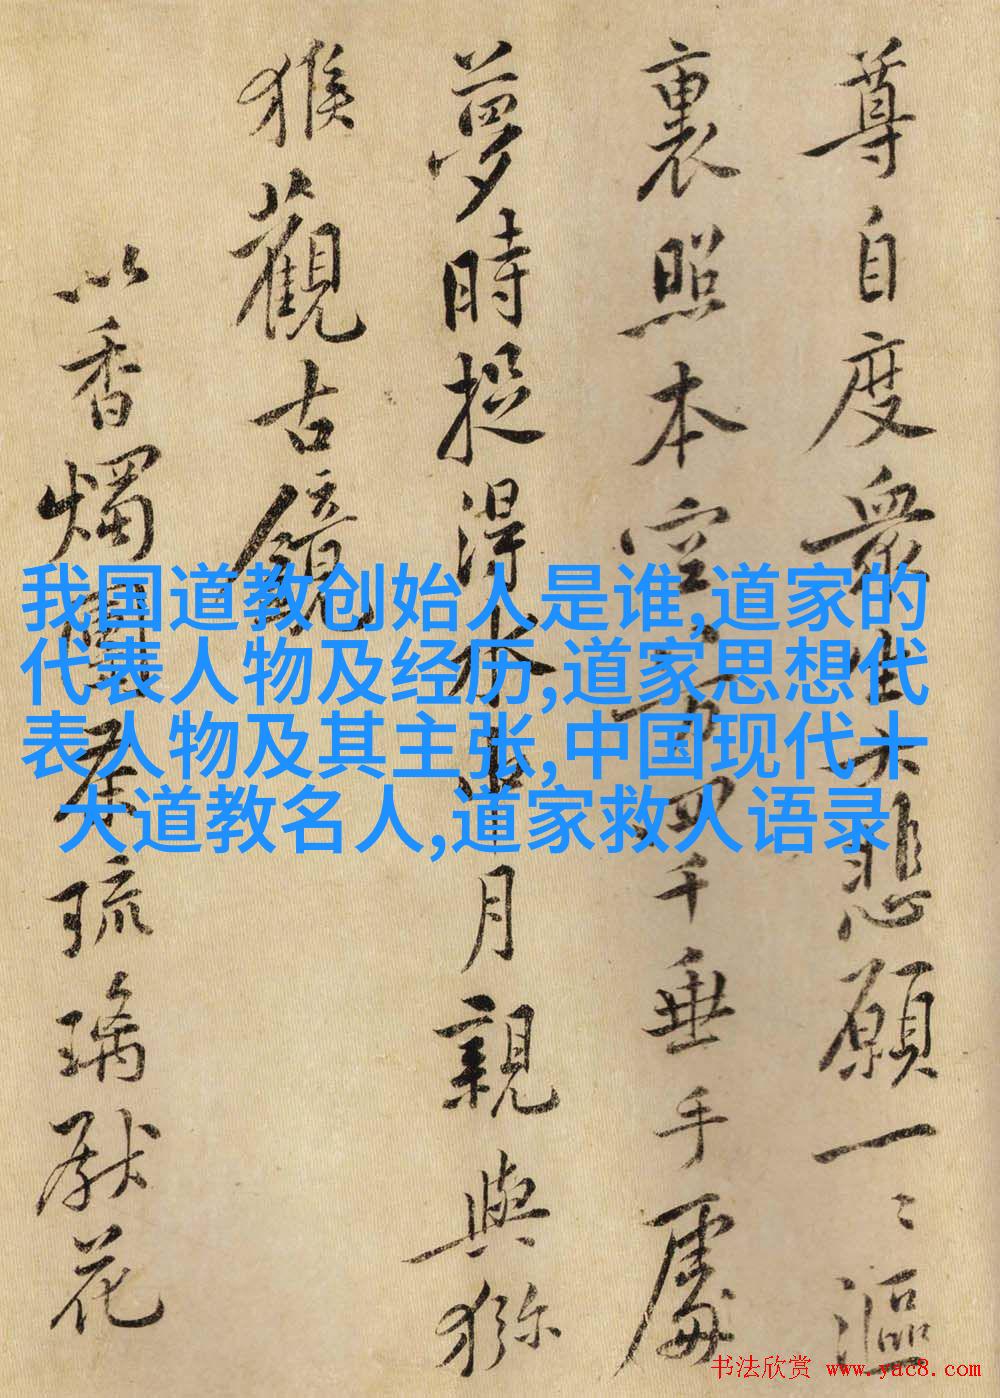 尊自度眾生大悲願一二漚
裏照本空八万四千垂手處
夢時捉得水中月親與獼
猴觀古鏡
以香燭團茶琉璃獻花
我国道教创始人是谁,道家的
代表人物及经历,道家思想代
表人物及其主张,中国现代十
大道教名人,道家救人语录
书法欣赏 www.yac8.com